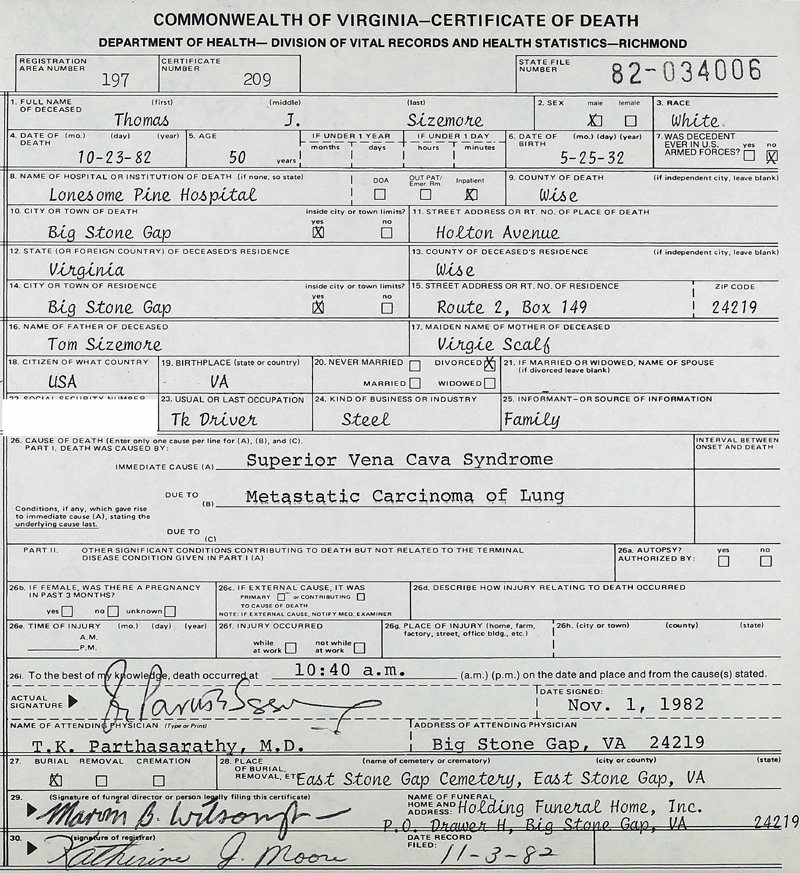 COMMONWEALTH OF VIRGINIA—CERTIFICATE OF DEATH
DEPARTMENT OF HEALTH— DIVISION OF VITAL RECORDS AND HEALTH STATISTICS—RICHMOND
REGISTRATION AREA NUMBER 197 CERTIFICATE NUMBER 209 STATE FILE NUMBER 82-034006
1. FULL NAME OF DECEASED (first) (middle) (last) 2. SEX male female 3. RACE
Thomas J. Sizemore X White
4. DATE OF DEATH (mo.) (day) (year) 5. AGE IF UNDER 1 YEAR IF UNDER 1 DAY 6. DATE OF BIRTH (mo.) (day) (year) 7. WAS DECEDENT EVER IN U.S. ARMED FORCES? yes no
10-23-82 50 years months days hours minutes 5-25-32 X
8. NAME OF HOSPITAL OR INSTITUTION OF DEATH (if none, so state) DOA OUT PAT/ Emer. Rm. Inpatient 9. COUNTY OF DEATH (if independent city, leave blank)
Lonesome Pine Hospital X Wise
10. CITY OR TOWN OF DEATH inside city or town limits? yes no 11. STREET ADDRESS OR RT. NO. OF PLACE OF DEATH
Big Stone Gap X Holton Avenue
12. STATE (OR FOREIGN COUNTRY) OF DECEASED'S RESIDENCE 13. COUNTY OF DECEASED'S RESIDENCE (if independent city, leave blank)
Virginia Wise
14. CITY OR TOWN OF RESIDENCE inside city or town limits? yes no 15. STREET ADDRESS OR RT. NO. OF RESIDENCE ZIP CODE
Big Stone Gap X Route 2, Box 149 24219
16. NAME OF FATHER OF DECEASED 17. MAIDEN NAME OF MOTHER OF DECEASED
Tom Sizemore Virgie Scalf
18. CITIZEN OF WHAT COUNTRY 19. BIRTHPLACE (state or country) 20. NEVER MARRIED DIVORCED X 21. IF MARRIED OR WIDOWED, NAME OF SPOUSE (if divorced leave blank)
USA VA MARRIED WIDOWED
22. SOCIAL SECURITY NUMBER 23. USUAL OR LAST OCCUPATION 24. KIND OF BUSINESS OR INDUSTRY 25. INFORMANT—OR SOURCE OF INFORMATION
Tk Driver Steel Family
26. CAUSE OF DEATH (Enter only one cause per line for (A), (B), and (C). INTERVAL BETWEEN ONSET AND DEATH
PART I. DEATH WAS CAUSED BY:
IMMEDIATE CAUSE (A) Superior Vena Cava Syndrome
DUE TO (B) Metastatic Carcinoma of Lung
Conditions, if any, which gave rise to immediate cause (A), stating the underlying cause last.
DUE TO (C)
PART II. OTHER SIGNIFICANT CONDITIONS CONTRIBUTING TO DEATH BUT NOT RELATED TO THE TERMINAL DISEASE CONDITION GIVEN IN PART I (A) 26a. AUTOPSY? AUTHORIZED BY: yes no
26b. IF FEMALE, WAS THERE A PREGNANCY IN PAST 3 MONTHS? 26c. IF EXTERNAL CAUSE, IT WAS 26d. DESCRIBE HOW INJURY RELATING TO DEATH OCCURRED
PRIMARY or CONTRIBUTING
TO CAUSE OF DEATH
yes no unknown NOTE: IF EXTERNAL CAUSE, NOTIFY MED. EXAMINER
26e. TIME OF INJURY (mo.) (day) (year) 26f. INJURY OCCURRED 26g. PLACE OF INJURY (home, farm, factory, street, office bldg., etc.) 26h. (city or town) (county) (state)
A.M.
P.M. while at work not while at work
26i. To the best of my knowledge, death occurred at 10:40 a.m. (a.m.) (p.m.) on the date and place and from the cause(s) stated.
ACTUAL SIGNATURE DATE SIGNED: Nov. 1, 1982
NAME OF ATTENDING PHYSICIAN (Type or Print) ADDRESS OF ATTENDING PHYSICIAN
T.K. Parthasarathy, M.D. Big Stone Gap, VA 24219
27. BURIAL REMOVAL CREMATION 28. PLACE OF BURIAL, REMOVAL, ETC. (name of cemetery or crematory) (city or county) (state)
X East Stone Gap Cemetery, East Stone Gap, VA
29. (Signature of funeral director or person legally filing this certificate) NAME OF FUNERAL HOME AND ADDRESS: Holding Funeral Home, Inc.
Marvin B. Wilson P.O. Drawer H, Big Stone Gap, VA 24219
30. (signature of registrar) DATE RECORD FILED:
Katherine J. Moore 11-3-82